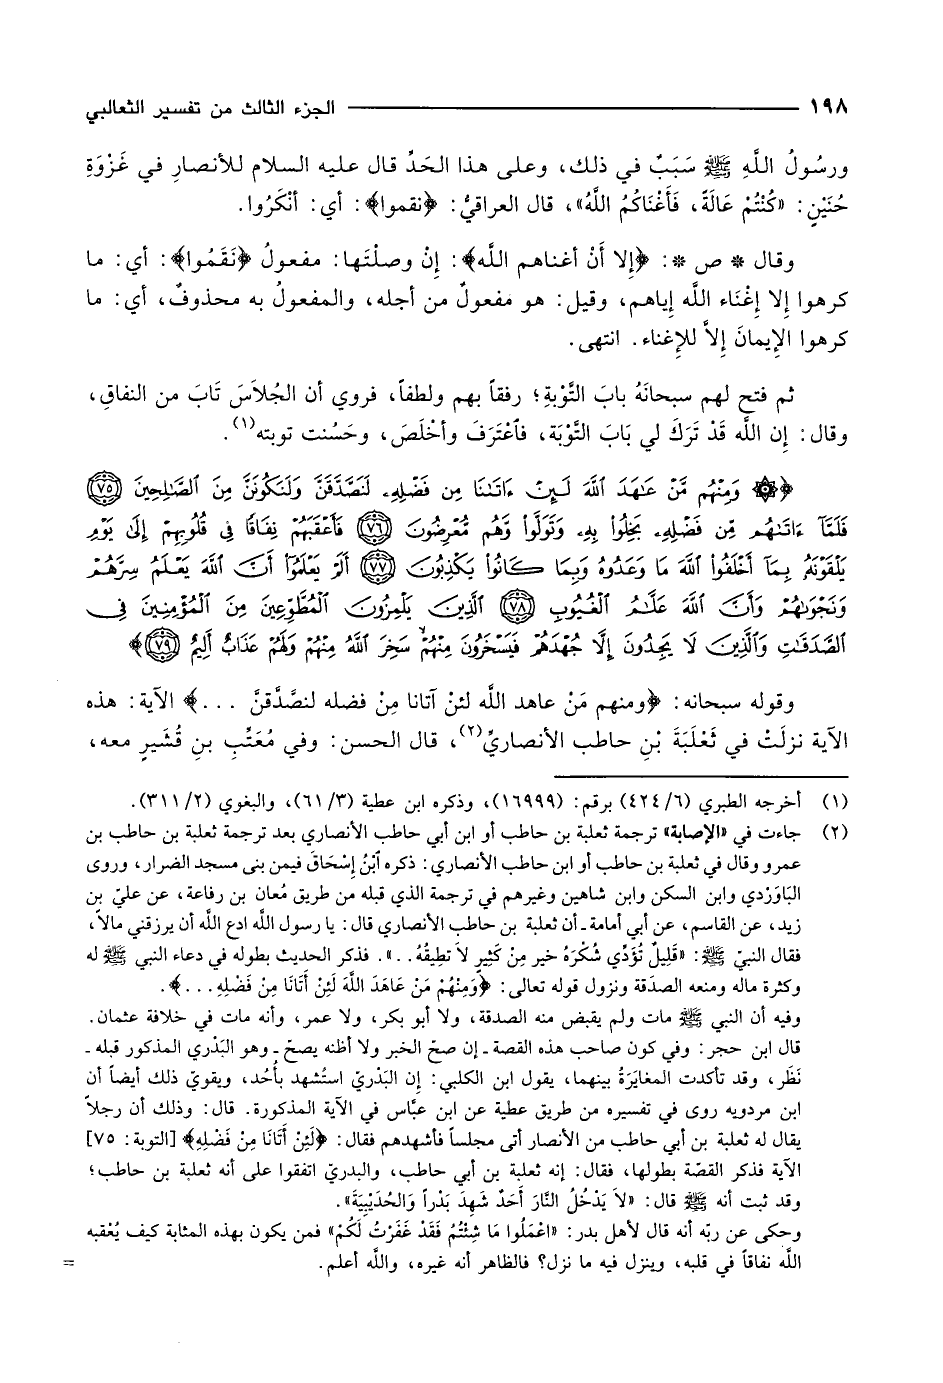 ١٩٨ ــــــــــــــــ الجزء الثالث من تفسير الثعالبي
ورسُولُ اللَّهِ ﷺ سَبَبٌ في ذلك، وعلى هذا الحَدِّ قال عليه السلام للأنصارِ في غَزْوَةِ
حُنَيْنٍ: «كُنْتُمْ عَالَةً، فَأَغْنَاكُمُ اللَّهُ»، قال العراقيُّ: ﴿نقموا﴾: أي: أنْكَرُوا.
وقال * ص *: ﴿إِلا أَنْ أغناهم اللَّه﴾: إِنْ وصلْتَها: مفعولُ ﴿نَقَمُوا﴾: أي: ما
كرهوا إِلا إِغْنَاء اللَّه إِياهم، وقيل: هو مفعولٌ من أجله، والمفعولُ به محذوفٌ، أي: ما
كرهوا الإِيمانَ إِلاَّ للإِغناء. انتهى.
ثم فتح لهم سبحانَهُ بابَ التَّوْبةِ؛ رفقاً بهم ولطفاً، فروي أن الجُلاَسَ تَابَ من النفاقِ،
وقال: إِن اللَّه قَدْ تَرَكَ لي بَابَ التَّوْبَة، فاعْتَرَفَ وأخْلَصَ، وحَسُنت توبته(١).
﴿۞ وَمِنْهُم مَّنْ عَٰهَدَ ٱللَّهَ لَئِنْ ءَاتَىٰنَا مِن فَضْلِهِۦ لَنَصَّدَّقَنَّ وَلَنَكُونَنَّ مِنَ ٱلصَّٰلِحِينَ ﴿٧٥﴾
فَلَمَّآ ءَاتَىٰهُم مِّن فَضْلِهِۦ بَخِلُوا۟ بِهِۦ وَتَوَلَّوا۟ وَّهُم مُّعْرِضُونَ ﴿٧٦﴾ فَأَعْقَبَهُمْ نِفَاقًا فِى قُلُوبِهِمْ إِلَىٰ يَوْمِ
يَلْقَوْنَهُۥ بِمَآ أَخْلَفُوا۟ ٱللَّهَ مَا وَعَدُوهُ وَبِمَا كَانُوا۟ يَكْذِبُونَ ﴿٧٧﴾ أَلَمْ يَعْلَمُوٓا۟ أَنَّ ٱللَّهَ يَعْلَمُ سِرَّهُمْ
وَنَجْوَىٰهُمْ وَأَنَّ ٱللَّهَ عَلَّٰمُ ٱلْغُيُوبِ ﴿٧٨﴾ ٱلَّذِينَ يَلْمِزُونَ ٱلْمُطَّوِّعِينَ مِنَ ٱلْمُؤْمِنِينَ فِى
ٱلصَّدَقَٰتِ وَٱلَّذِينَ لَا يَجِدُونَ إِلَّا جُهْدَهُمْ فَيَسْخَرُونَ مِنْهُمْ ۙ سَخِرَ ٱللَّهُ مِنْهُمْ وَلَهُمْ عَذَابٌ أَلِيمٌ ﴿٧٩﴾﴾
وقوله سبحانه: ﴿ومنهم مَنْ عاهد اللَّه لئنْ آتانا مِنْ فضله لنصَّدقنَّ ...﴾ الآية: هذه
الآية نزلَتْ في ثَعْلَبَةَ بْنِ حاطب الأنصاريِّ(٢)، قال الحسن: وفي مُعَتِّبِ بنِ قُشَيرٍ معه،
(١) أخرجه الطبري (٦/ ٤٢٤) برقم: (١٦٩٩٩)، وذكره ابن عطية (٣/ ٦١)، والبغوي (٢/ ٣١١).
(٢) جاءت في «الإصابة» ترجمة ثعلبة بن حاطب أو ابن أبي حاطب الأنصاري بعد ترجمة ثعلبة بن حاطب بن
عمرو وقال في ثعلبة بن حاطب أو ابن حاطب الأنصاري: ذكره ٱبْنُ إِسْحَاقَ فيمن بنى مسجد الضرار، وروى
البَاوَرْدي وابن السكن وابن شاهين وغيرهم في ترجمة الذي قبله من طريق مُعان بن رفاعة، عن عليّ بن
زيد، عن القاسم، عن أبي أمامة ـ أن ثعلبة بن حاطب الأنصاري قال: يا رسول اللَّه ادع اللَّه أن يرزقني مالاً،
فقال النبيّ ﷺ: «قَلِيلٌ تُؤَدِّي شُكْرَهُ خير مِنْ كَثِيرٍ لاَ تطِيقُهُ ..». فذكر الحديث بطوله في دعاء النبي ﷺ له
وكثرة ماله ومنعه الصدَقة ونزول قوله تعالى: ﴿وَمِنْهُمْ مَنْ عَاهَدَ اللَّهَ لَئِنْ أَتَانَا مِنْ فَضْلِهِ...﴾.
وفيه أن النبي ﷺ مات ولم يقبض منه الصدقة، ولا أبو بكر، ولا عمر، وأنه مات في خلافة عثمان.
قال ابن حجر: وفي كون صاحب هذه القصة ـ إن صحّ الخبر ولا أظنه يصحّ ـ وهو البَدْري المذكور قبله ـ
نَظَر، وقد تأكدت المغايَرَةُ بينهما، يقول ابن الكلبي: إن البَدْريّ استُشهد بأُحُد، ويقويّ ذلك أيضاً أن
ابن مردويه روى في تفسيره من طريق عطية عن ابن عبَّاس في الآية المذكورة. قال: وذلك أن رجلاً
يقال له ثعلبة بن أبي حاطب من الأنصار أتى مجلساً فأشهدهم فقال: ﴿لَئِنْ أَتَانَا مِنْ فَضْلِهِ﴾ [التوبة: ٧٥]
الآية فذكر القصّة بطولها، فقال: إنه ثعلبة بن أبي حاطب، والبدريّ اتفقوا على أنه ثعلبة بن حاطب؛
وقد ثبت أنه ﷺ قال: «لاَ يَدْخُلُ النَّارَ أَحَدٌ شَهِدَ بَدْراً وَالحُدَيْبِيَةَ».
وحكى عن ربّه أنه قال لأهل بدر: «اعْمَلُوا مَا شِئْتُمْ فَقَدْ غَفَرْتُ لَكُمْ» فمن يكون بهذه المثابة كيف يُعْقبه
اللَّه نفاقاً في قلبه، وينزل فيه ما نزل؟ فالظاهر أنه غيره، واللَّه أعلم. =